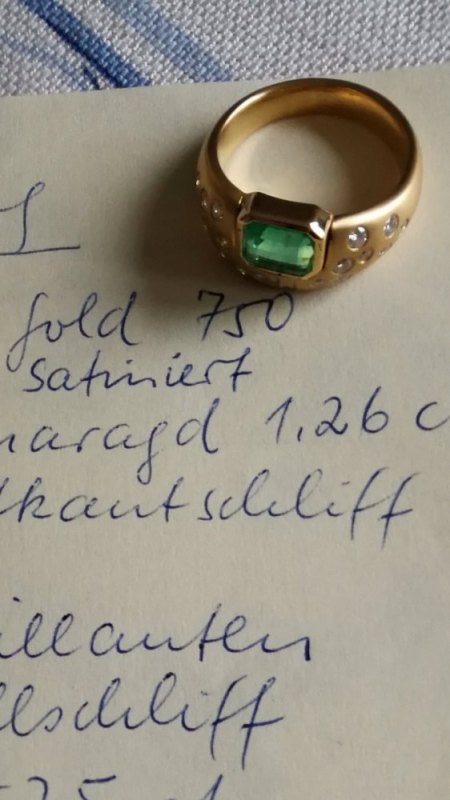 Gold 750
satiniert
maragd 1,26 c
tkantschliff
illanten
llschliff